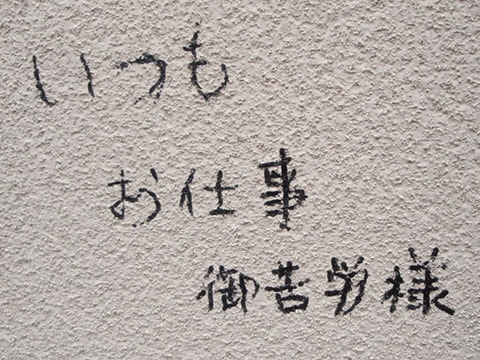 いつも
お仕事
御苦労様